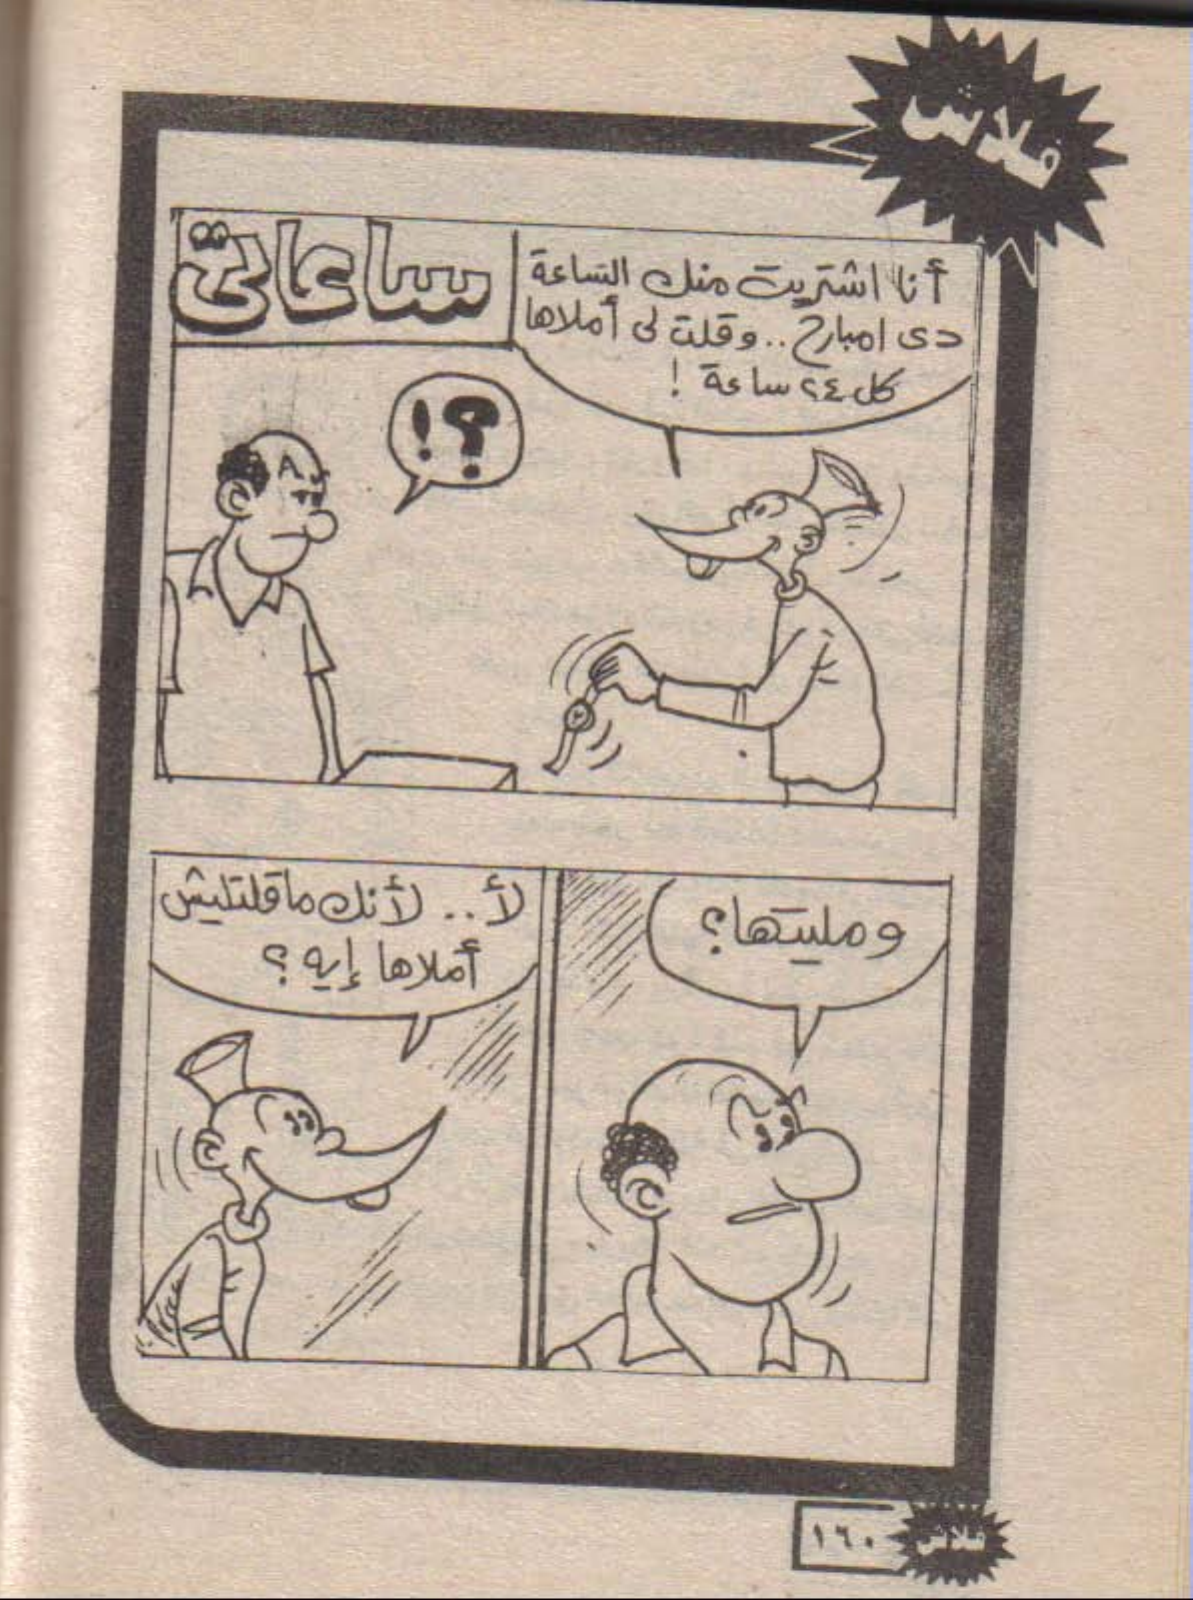 فلاش
ساعاتى
أنا اشتريت منك الساعة
دى امبارح .. وقلت لى أملاها
كل ٢٤ ساعة !
؟!
ومليتها؟
لأ .. لأنك ماقلتليش
أملاها إيه ؟
١٦٠
فلاش